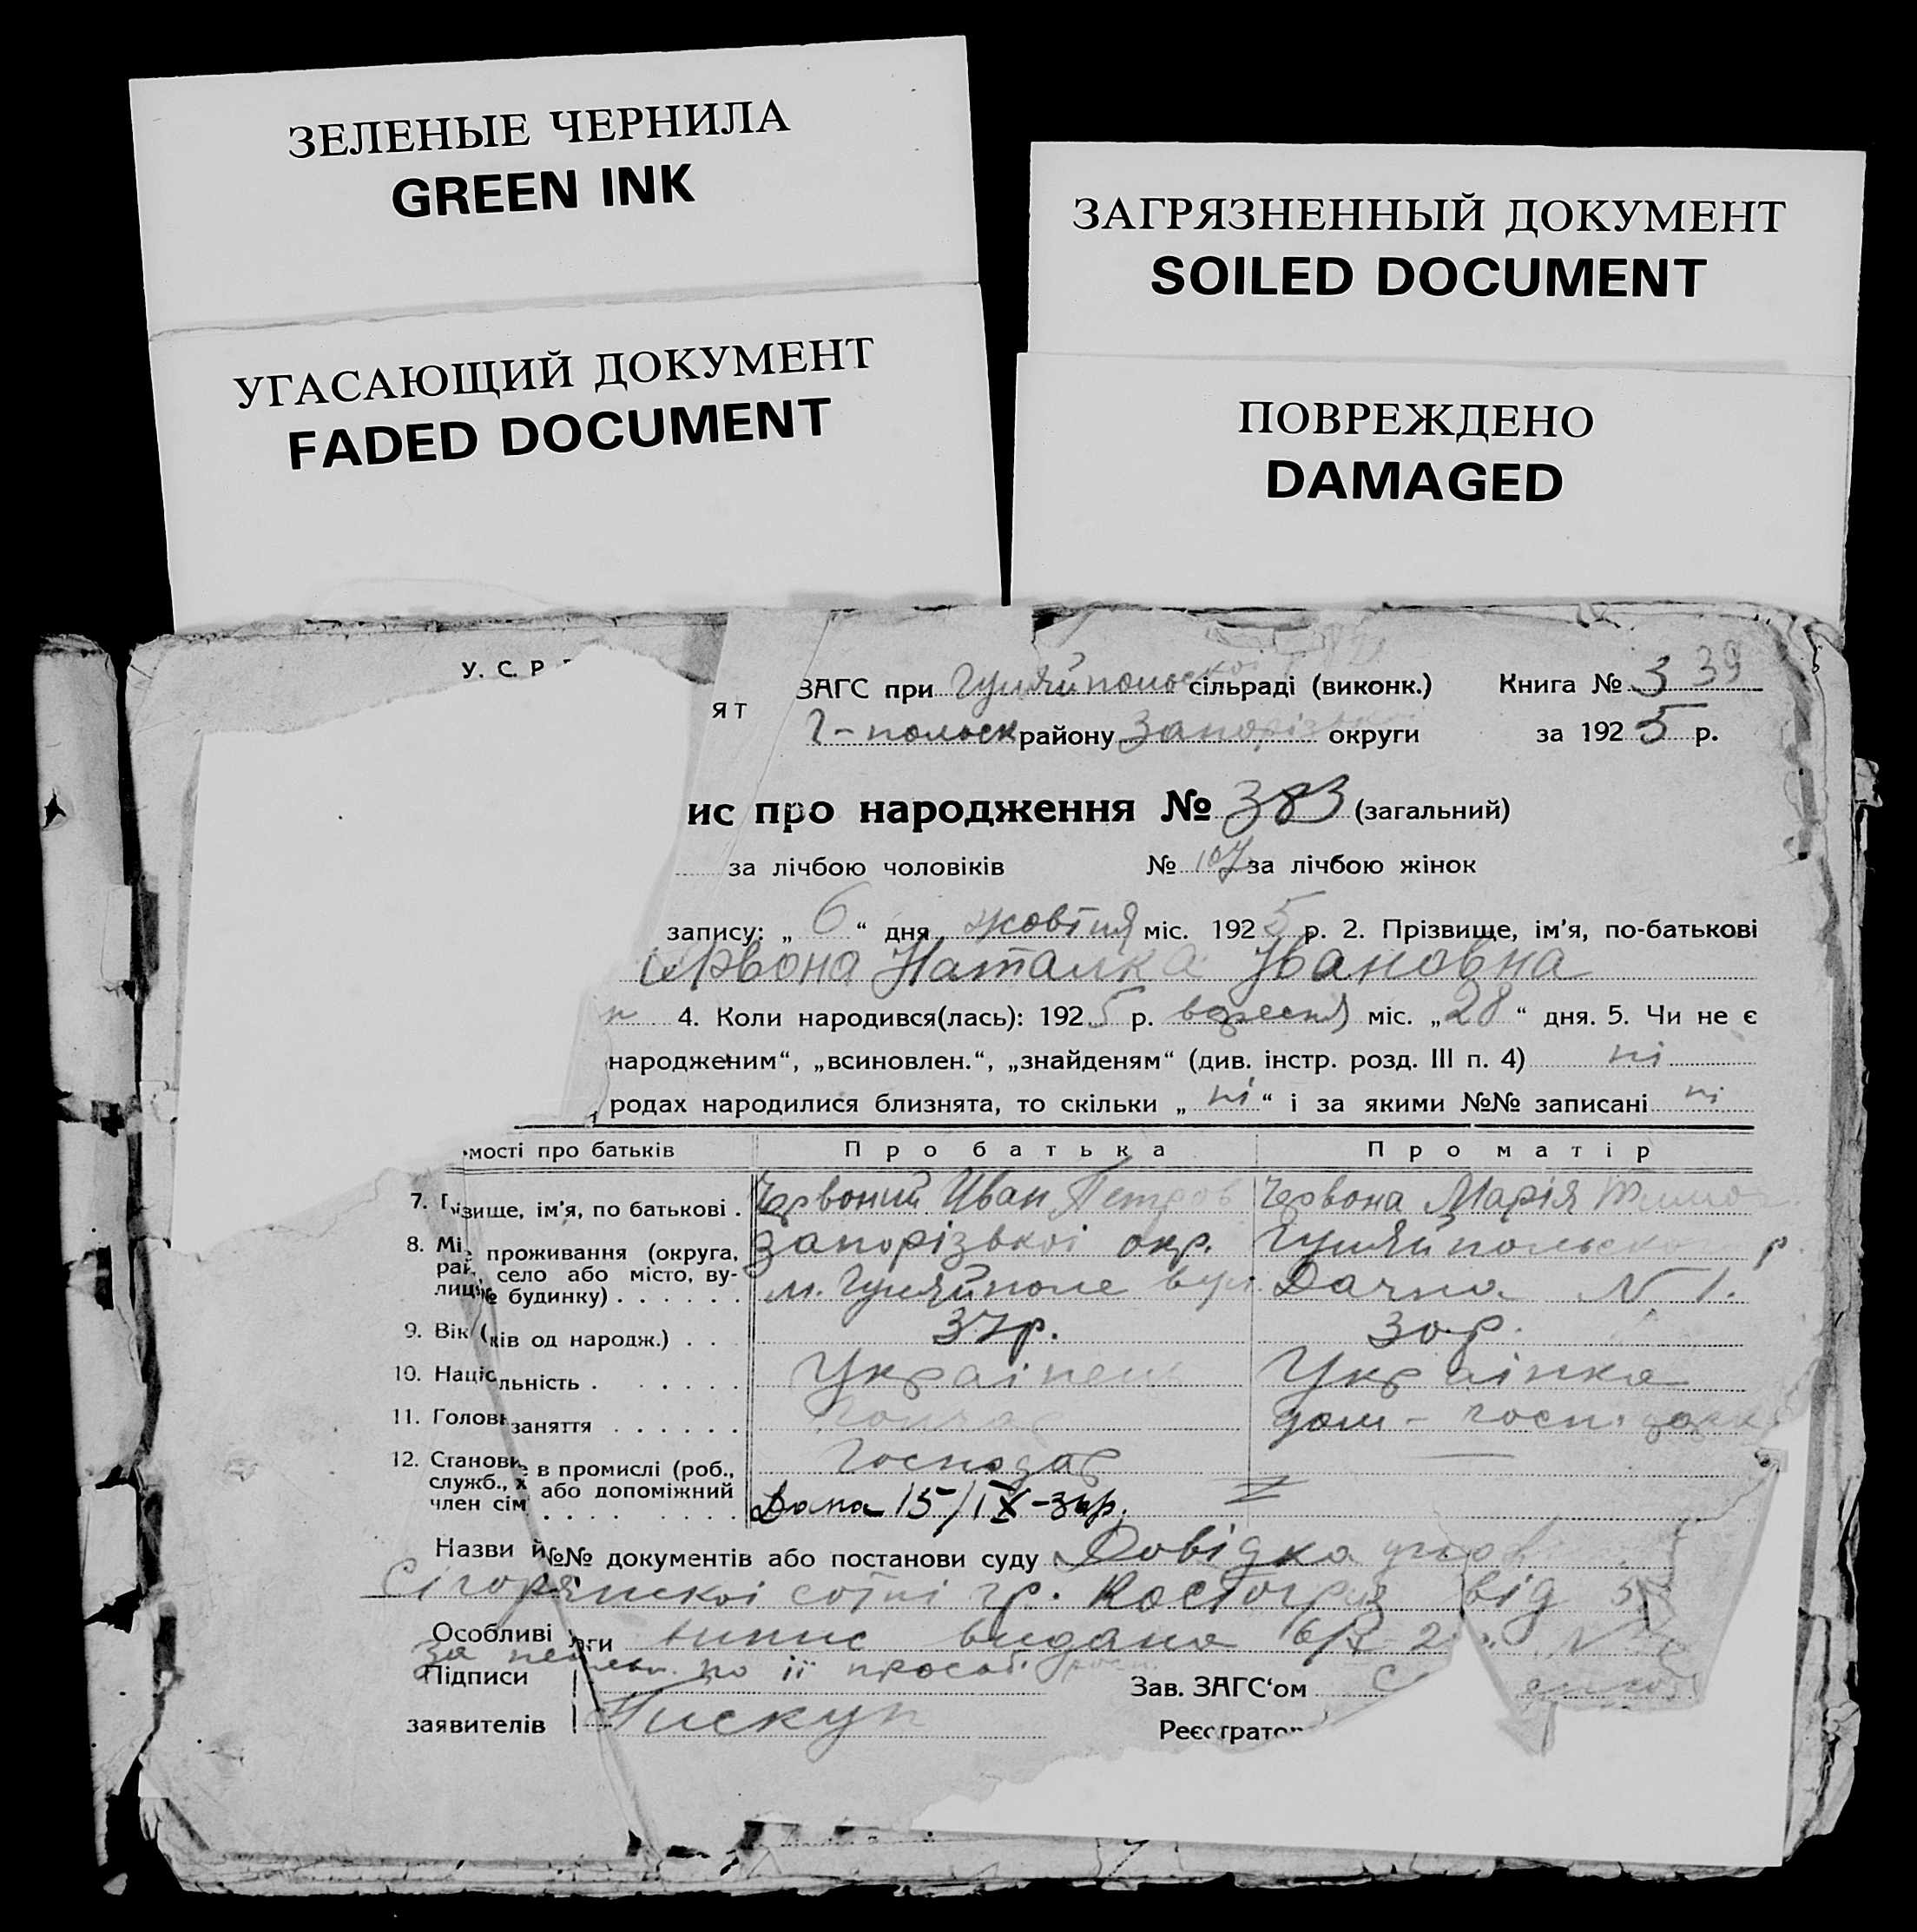 ЗЕЛЕНЫЕ ЧЕРНИЛА
GREEN INK
УГАСАЮЩИЙ ДОКУМЕНТ
FADED DOCUMENT
ЗАГРЯЗНЕННЫЙ ДОКУМЕНТ
SOILED DOCUMENT
ПОВРЕЖДЕНО
DAMAGED
У. С. Р.
ЗАГС при Гуляйпольскої сільраді (виконк.) Книга № 3 39
ят
Г-польск району Запорізької округи за 1925 р.
ис про народження № 383 (загальний)
за лічбою чоловіків № 107 за лічбою жінок
запису: „ 6 “ дня жовтня міс. 1925 р. 2. Прізвище, ім'я, по-батькові
Червона Наталка Івановна
4. Коли народився(лась): 1925 р. вересня міс. „28“ дня. 5. Чи не є
народженим“, „всиновлен.“, „знайденям“ (див. інстр. розд. III п. 4) ні
родах народилися близнята, то скільки „ ні “ і за якими №№ записані ні
мості про батьків Про батька Про матір
7. Прізвище, ім'я, по батькові . Червоний Иван Петров Червона Марія
8. Мі проживання (округа, Запорізької окр. Гуляйпольсько р.
рай, село або місто, ву-
лиця № будинку) . . . . . . м. Гуляйполе вул. Дачна N 1.
9. Вік (ків од народж.) . . 37р. 30р.
10. Націо льність . . . . . . Українець Українка
11. Головн заняття . . . . . . дом - госп.
12. Станови е в промислі (роб., Господар
служб., х або допоміжний
член сім . . . . . . Дана 15/IX-34р.
Назви й №№ документів або постанови суду Довідка
сотні гр. Костогриз від
Особливі ги випис видана 6/X
за по її просьбі
Підписи Зав. ЗАГС‘ом
заявителів Пискун Реєстратор